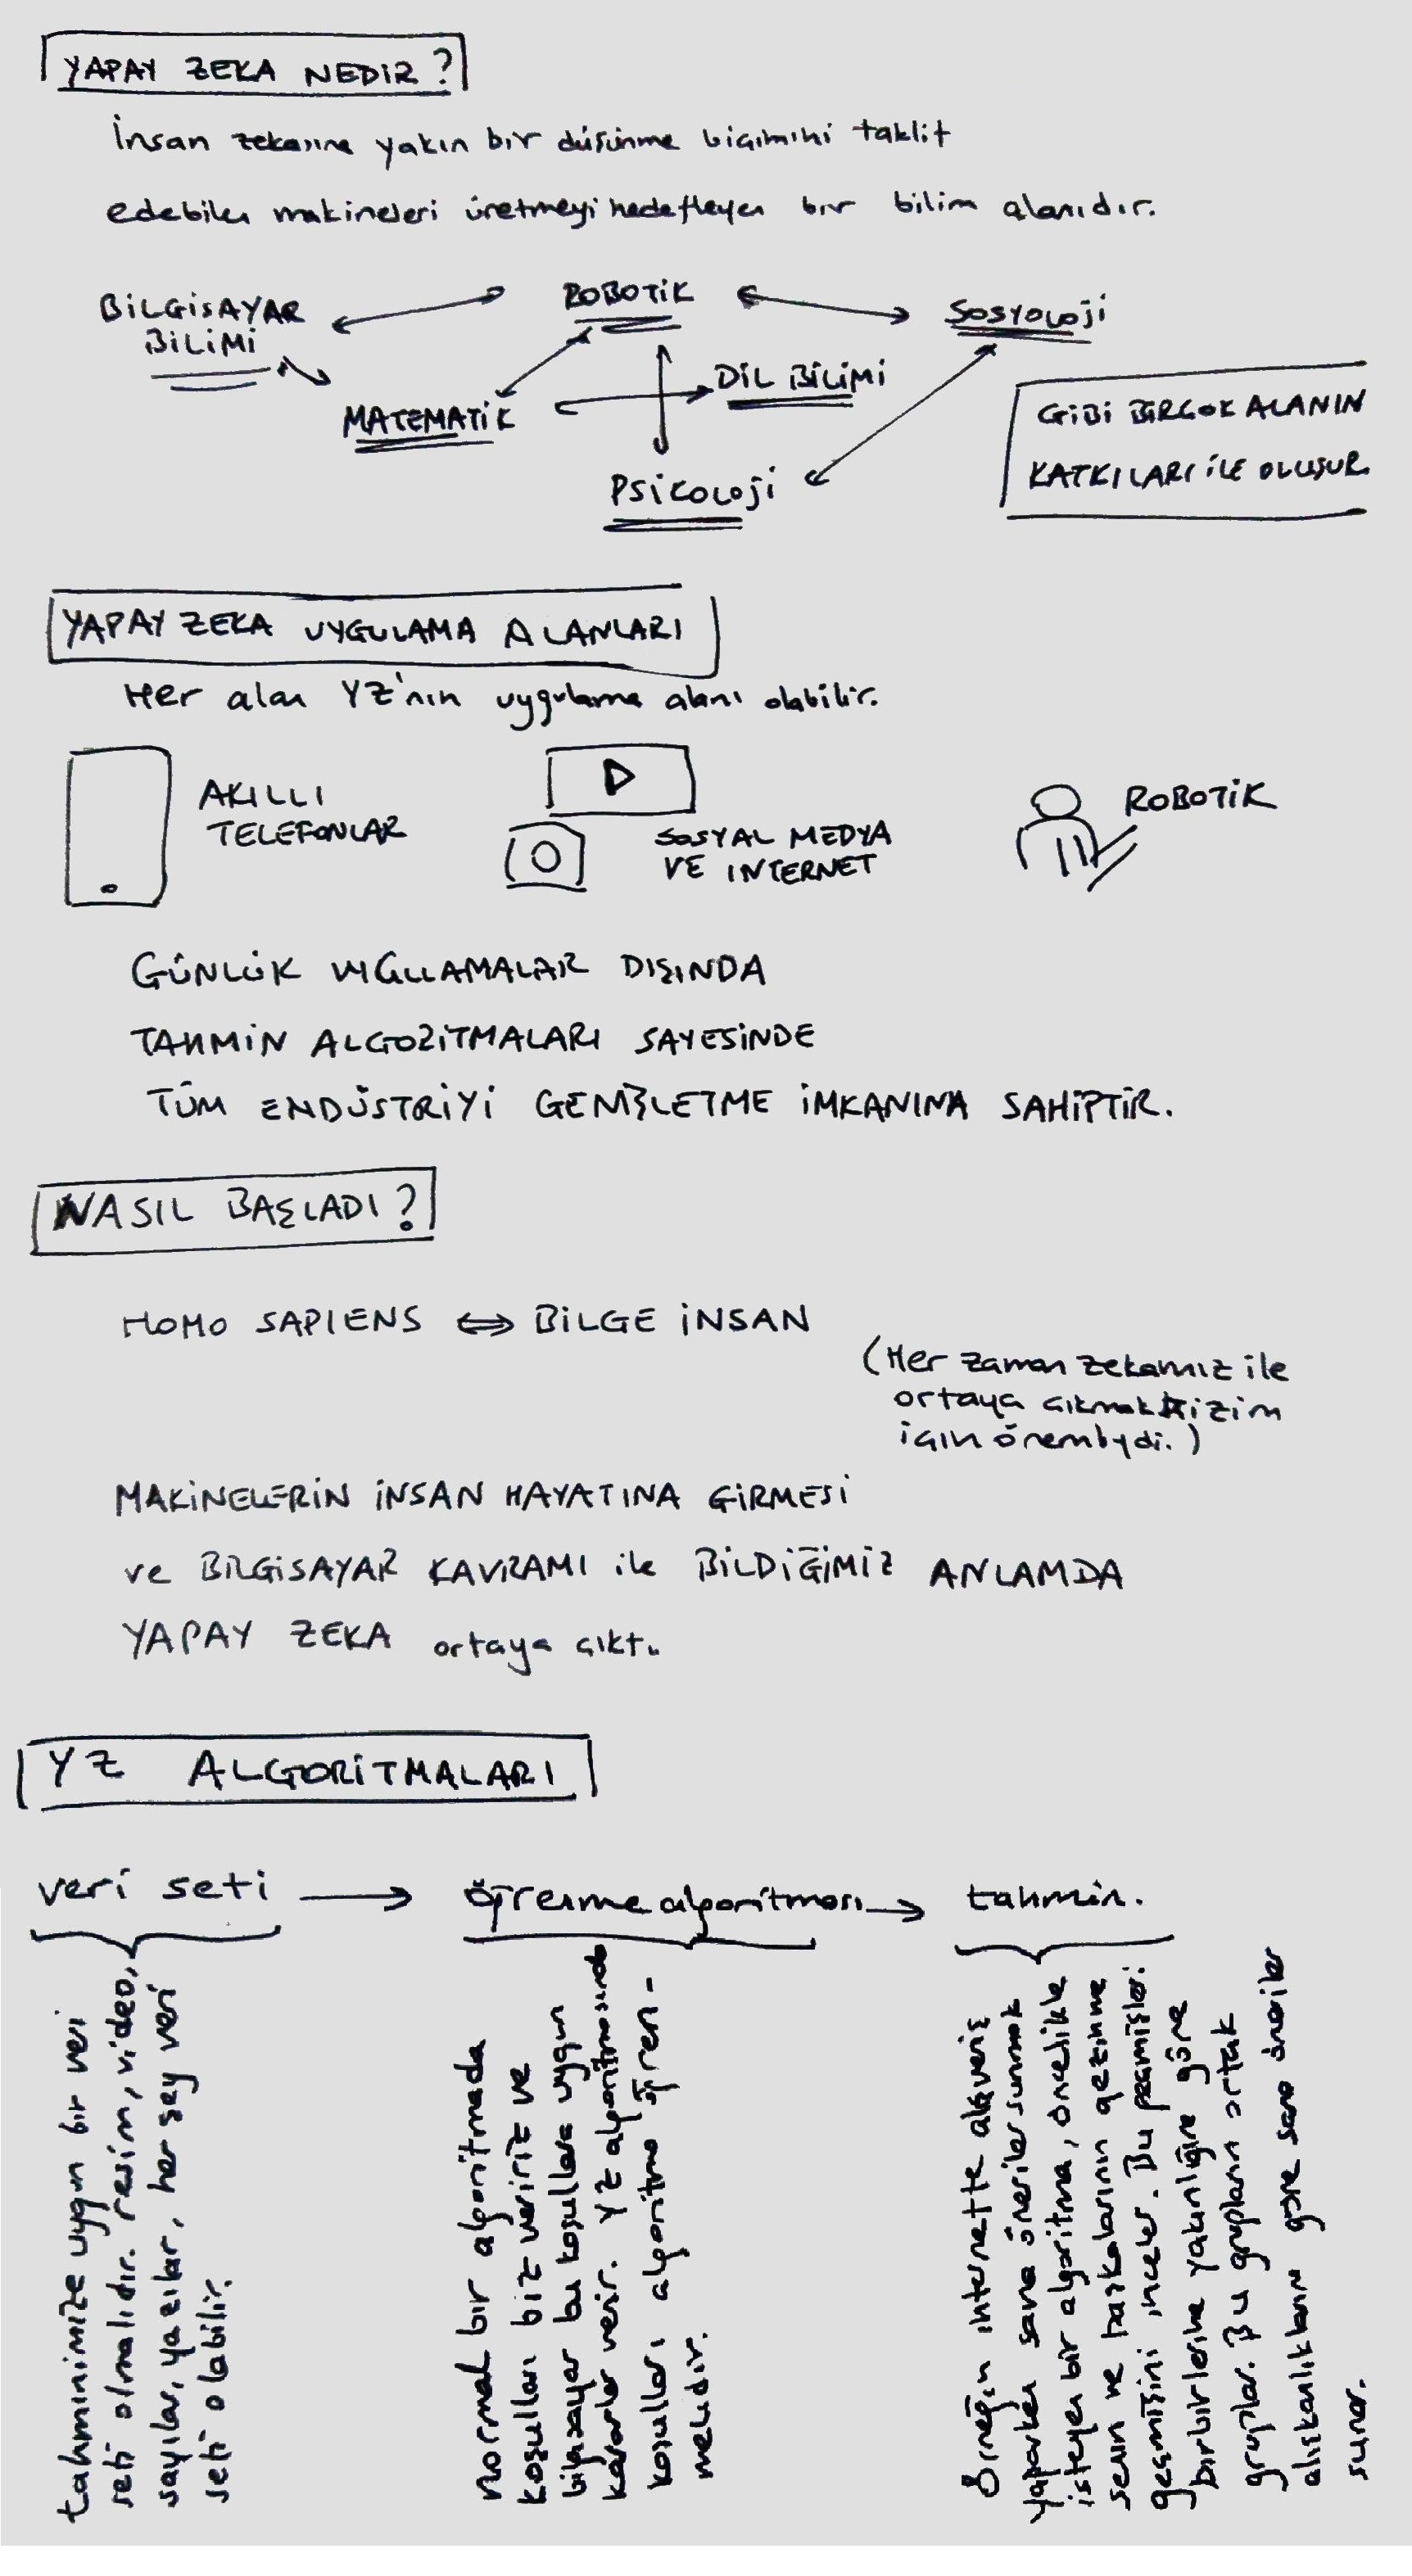 YAPAY ZEKA NEDİR?
İnsan zekasına yakın bir düşünme biçimini taklit
edebilen makineleri üretmeyi hedefleyen bir bilim alanıdır.
BİLGİSAYAR
BİLİMİ
ROBOTİK
SOSYOLOJİ
MATEMATİK
DİL BİLİMİ
PSİKOLOJİ
GİBİ BİRÇOK ALANIN
KATKILARI İLE OLUŞUR
YAPAY ZEKA UYGULAMA ALANLARI
Her alan YZ'nin uygulama alanı olabilir.
AKILLI
TELEFONLAR
SOSYAL MEDYA
VE INTERNET
ROBOTİK
GÜNLÜK UYGULAMALAR DIŞINDA
TAHMİN ALGORİTMALARI SAYESİNDE
TÜM ENDÜSTRİYİ GENİŞLETME İMKANINA SAHİPTİR.
NASIL BAŞLADI?
HOMO SAPIENS ⇔ BİLGE İNSAN
(Her zaman zekamız ile
ortaya çıkmak bizim
için önemliydi.)
MAKİNELERİN İNSAN HAYATINA GİRMESİ
ve BİLGİSAYAR KAVRAMI ile BİLDİĞİMİZ ANLAMDA
YAPAY ZEKA ortaya çıktı.
YZ ALGORİTMALARI
veri seti → öğrenme algoritması → tahmin.
tahminimize uygun bir veri
seti olmalıdır. resim, video,
sayılar, yazılar, her şey veri
seti olabilir.
normal bir algoritmada
koşulları biz veririz ve
bilgisayar bu koşullara uygun
kararlar verir. YZ algoritmasında
koşulları algoritma öğren-
melidir.
Örneğin internette alışveriş
yaparken sana öneriler sunmak
isteyen bir algoritma, öncelikle
senin ve başkalarının gezinme
geçmişini inceler. Bu geçmişleri
birbirlerine yakınlığına göre
gruplar. Bu grupların ortak
alışkanlıklarına göre sana öneriler
sunar.